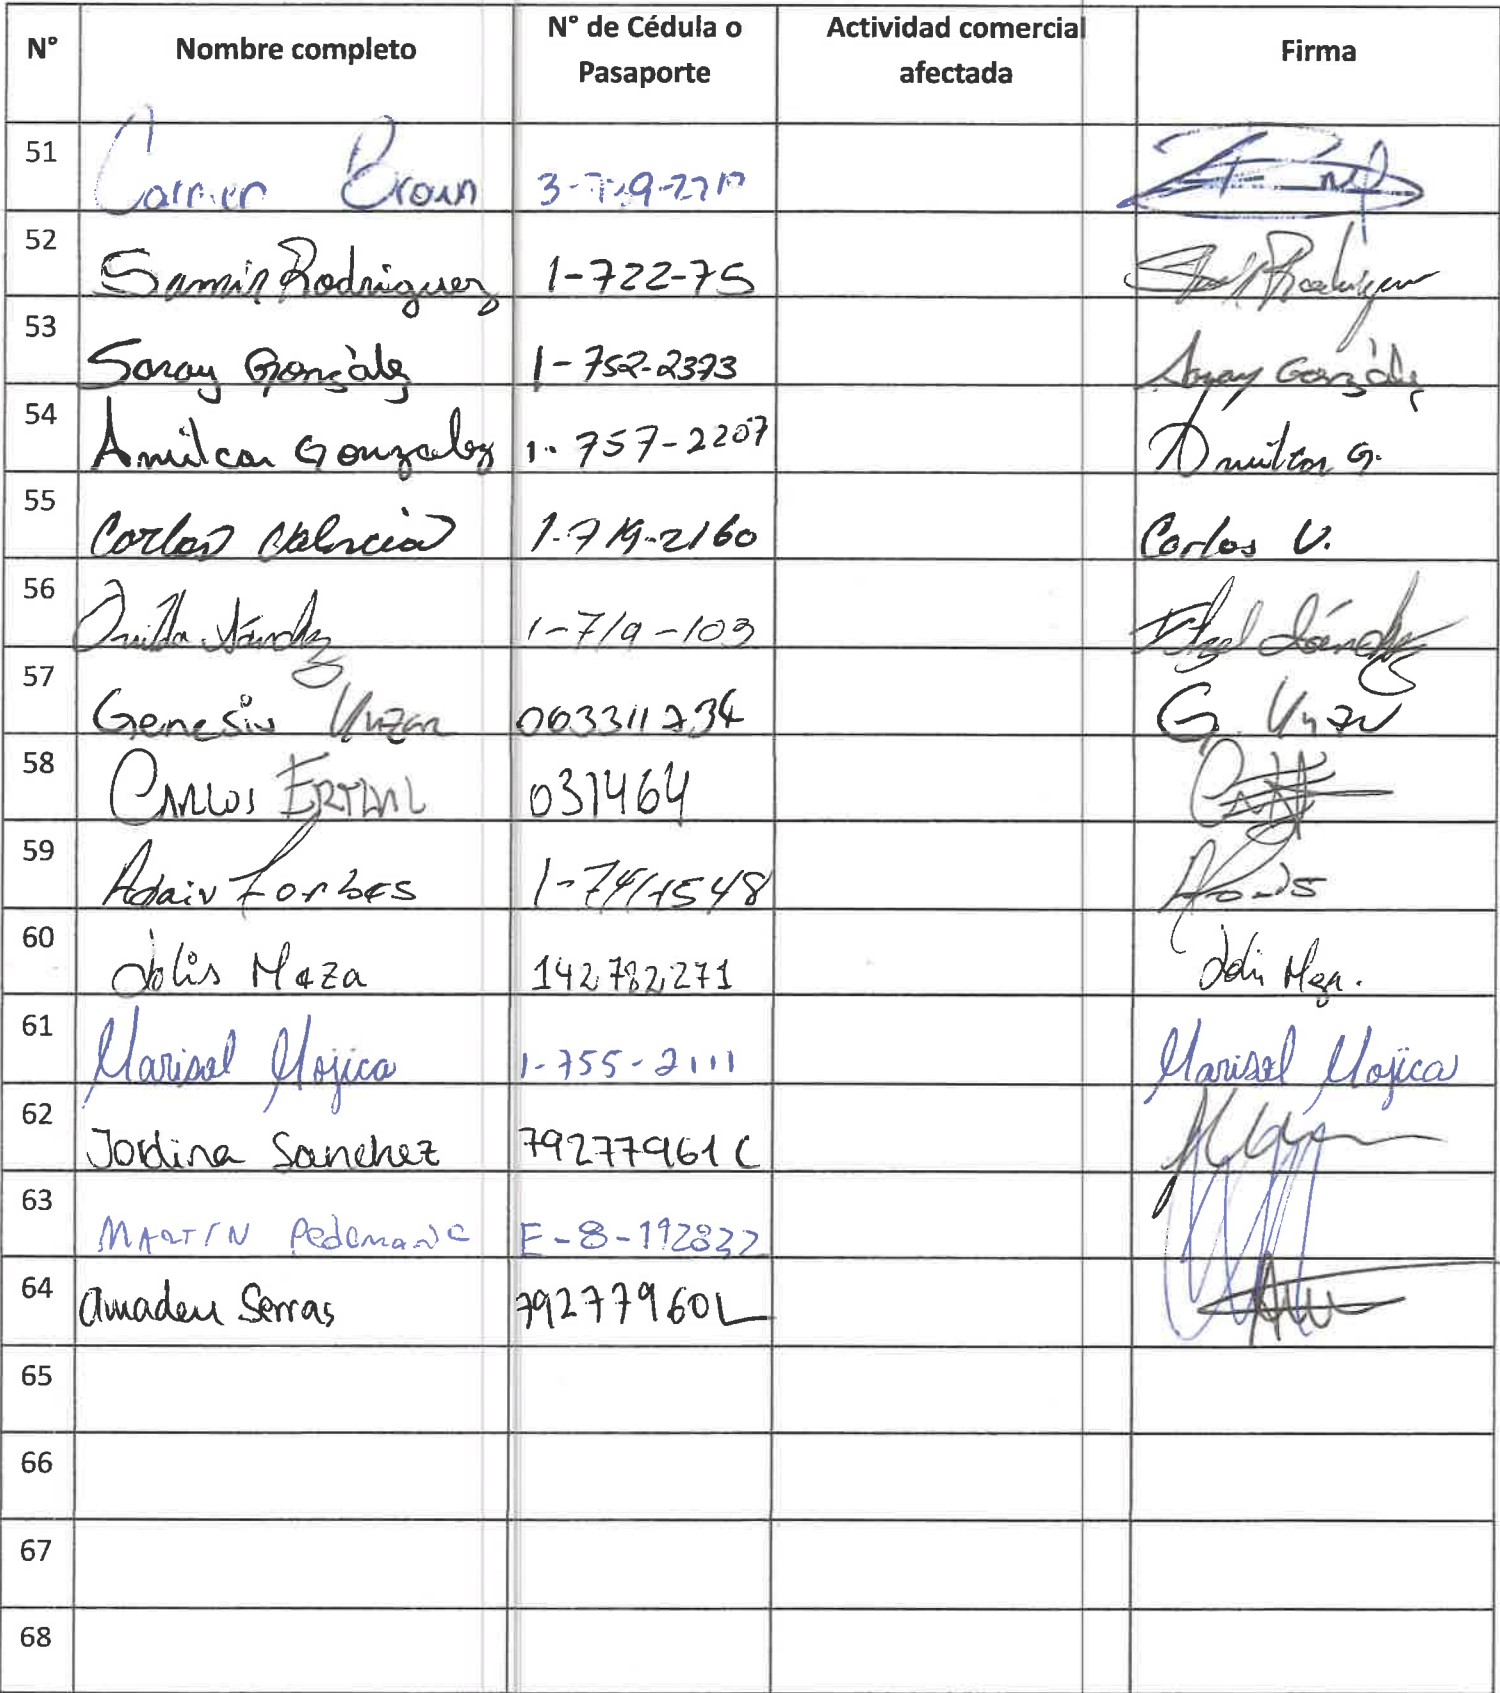 N° Nombre completo N° de Cédula o Pasaporte Actividad comercial afectada Firma
51 Carmen Brown
52 Samir Rodriguez 1-722-75
53 Saray Gonzàlez 1-752-2373 Saray Gonzàlez
54 Amilcar Gonzalez 1-757-2207 Amilcar G.
55 Carlos Valencia 1-719-2160 Carlos V.
56 Sánchez 1-719-103 Itzel Sánchez
57 Genesis 063311734 G.
58 Carlos 031464
59 Adair Forbes 1-741-1548
60 Jolis Meza 142782271 Jolis Meza.
61 Marisol Mojica 1-755-2111 Marisol Mojica
62 Jordina Sanchez 79277961C
63 MARTIN E-8-192822
64 Amadeu Serras 79277960L
65
66
67
68